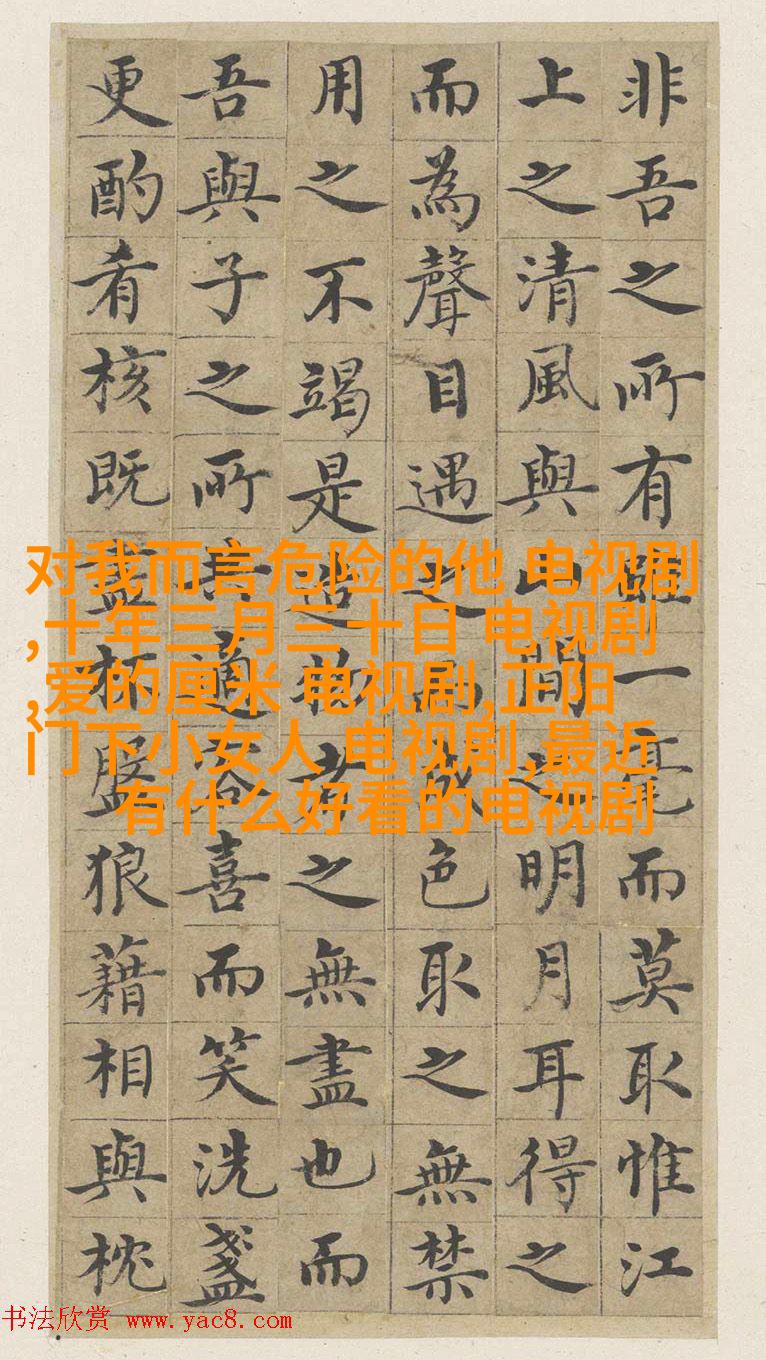 非吾之所有雖一毫而莫取惟江
上之清風與山間之明月耳得之
而為聲目遇之而成色取之無禁
用之不竭是造物者之無盡也而
吾與子之所共適客喜而笑洗盞
更酌肴核既盡杯盤狼藉相與枕
对我而言危险的他 电视剧
,十年三月三十日 电视剧
,爱的厘米 电视剧,正阳
门下小女人 电视剧,最近
有什么好看的电视剧
书法欣赏 www.yac8.com